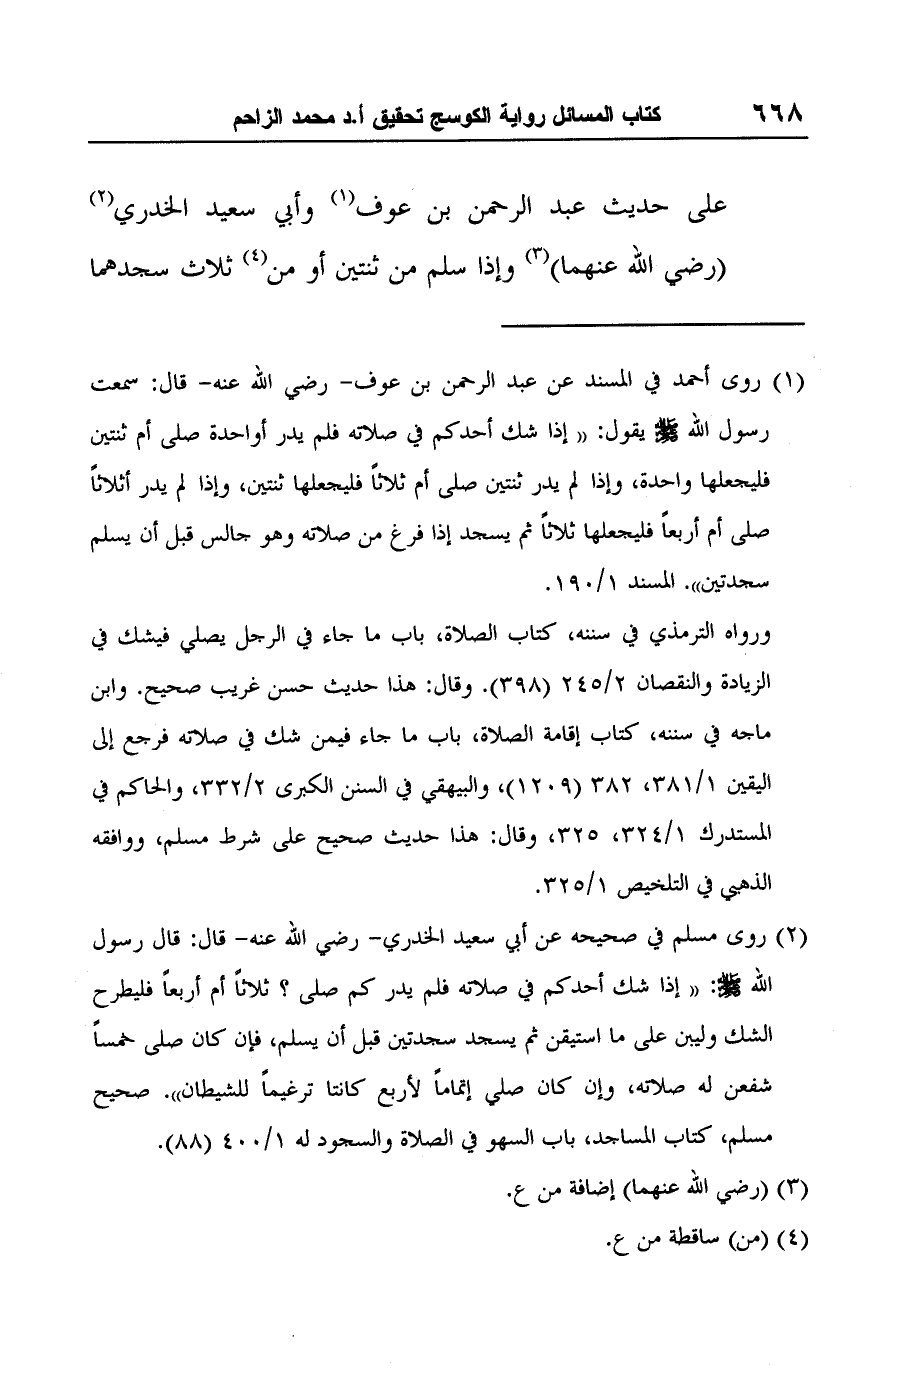 ٦٦٨ كتاب المسائل رواية الكوسج تحقيق أ.د محمد الزاحم
على حديث عبد الرحمن بن عوف(١) وأبي سعيد الخدري(٢)
(رضي الله عنهما)(٣) وإذا سلم من ثنتين أو من(٤) ثلاث سجدهما
(١) روى أحمد في المسند عن عبد الرحمن بن عوف- رضي الله عنه- قال: سمعت
رسول الله ﷺ يقول: (( إذا شك أحدكم في صلاته فلم يدر أواحدة صلى أم ثنتين
فليجعلها واحدة، وإذا لم يدر ثنتين صلى أم ثلاثاً فليجعلها ثنتين، وإذا لم يدر أثلاثاً
صلى أم أربعاً فليجعلها ثلاثاً ثم يسجد إذا فرغ من صلاته وهو جالس قبل أن يسلم
سجدتين)). المسند ١/١٩٠.
ورواه الترمذي في سننه، كتاب الصلاة، باب ما جاء في الرجل يصلي فيشك في
الزيادة والنقصان ٢/٢٤٥ (٣٩٨). وقال: هذا حديث حسن غريب صحيح. وابن
ماجه في سننه، كتاب إقامة الصلاة، باب ما جاء فيمن شك في صلاته فرجع إلى
اليقين ١/٣٨١، ٣٨٢ (١٢٠٩)، والبيهقي في السنن الكبرى ٢/٣٣٢، والحاكم في
المستدرك ١/٣٢٤، ٣٢٥، وقال: هذا حديث صحيح على شرط مسلم، ووافقه
الذهبي في التلخيص ١/٣٢٥.
(٢) روى مسلم في صحيحه عن أبي سعيد الخدري- رضي الله عنه- قال: قال رسول
الله ﷺ: (( إذا شك أحدكم في صلاته فلم يدر كم صلى ؟ ثلاثاً أم أربعاً فليطرح
الشك وليبن على ما استيقن ثم يسجد سجدتين قبل أن يسلم، فإن كان صلى خمساً
شفعن له صلاته، وإن كان صلي إتماماً لأربع كانتا ترغيماً للشيطان)). صحيح
مسلم، كتاب المساجد، باب السهو في الصلاة والسجود له ١/٤٠٠ (٨٨).
(٣) (رضي الله عنهما) إضافة من ع.
(٤) (من) ساقطة من ع.